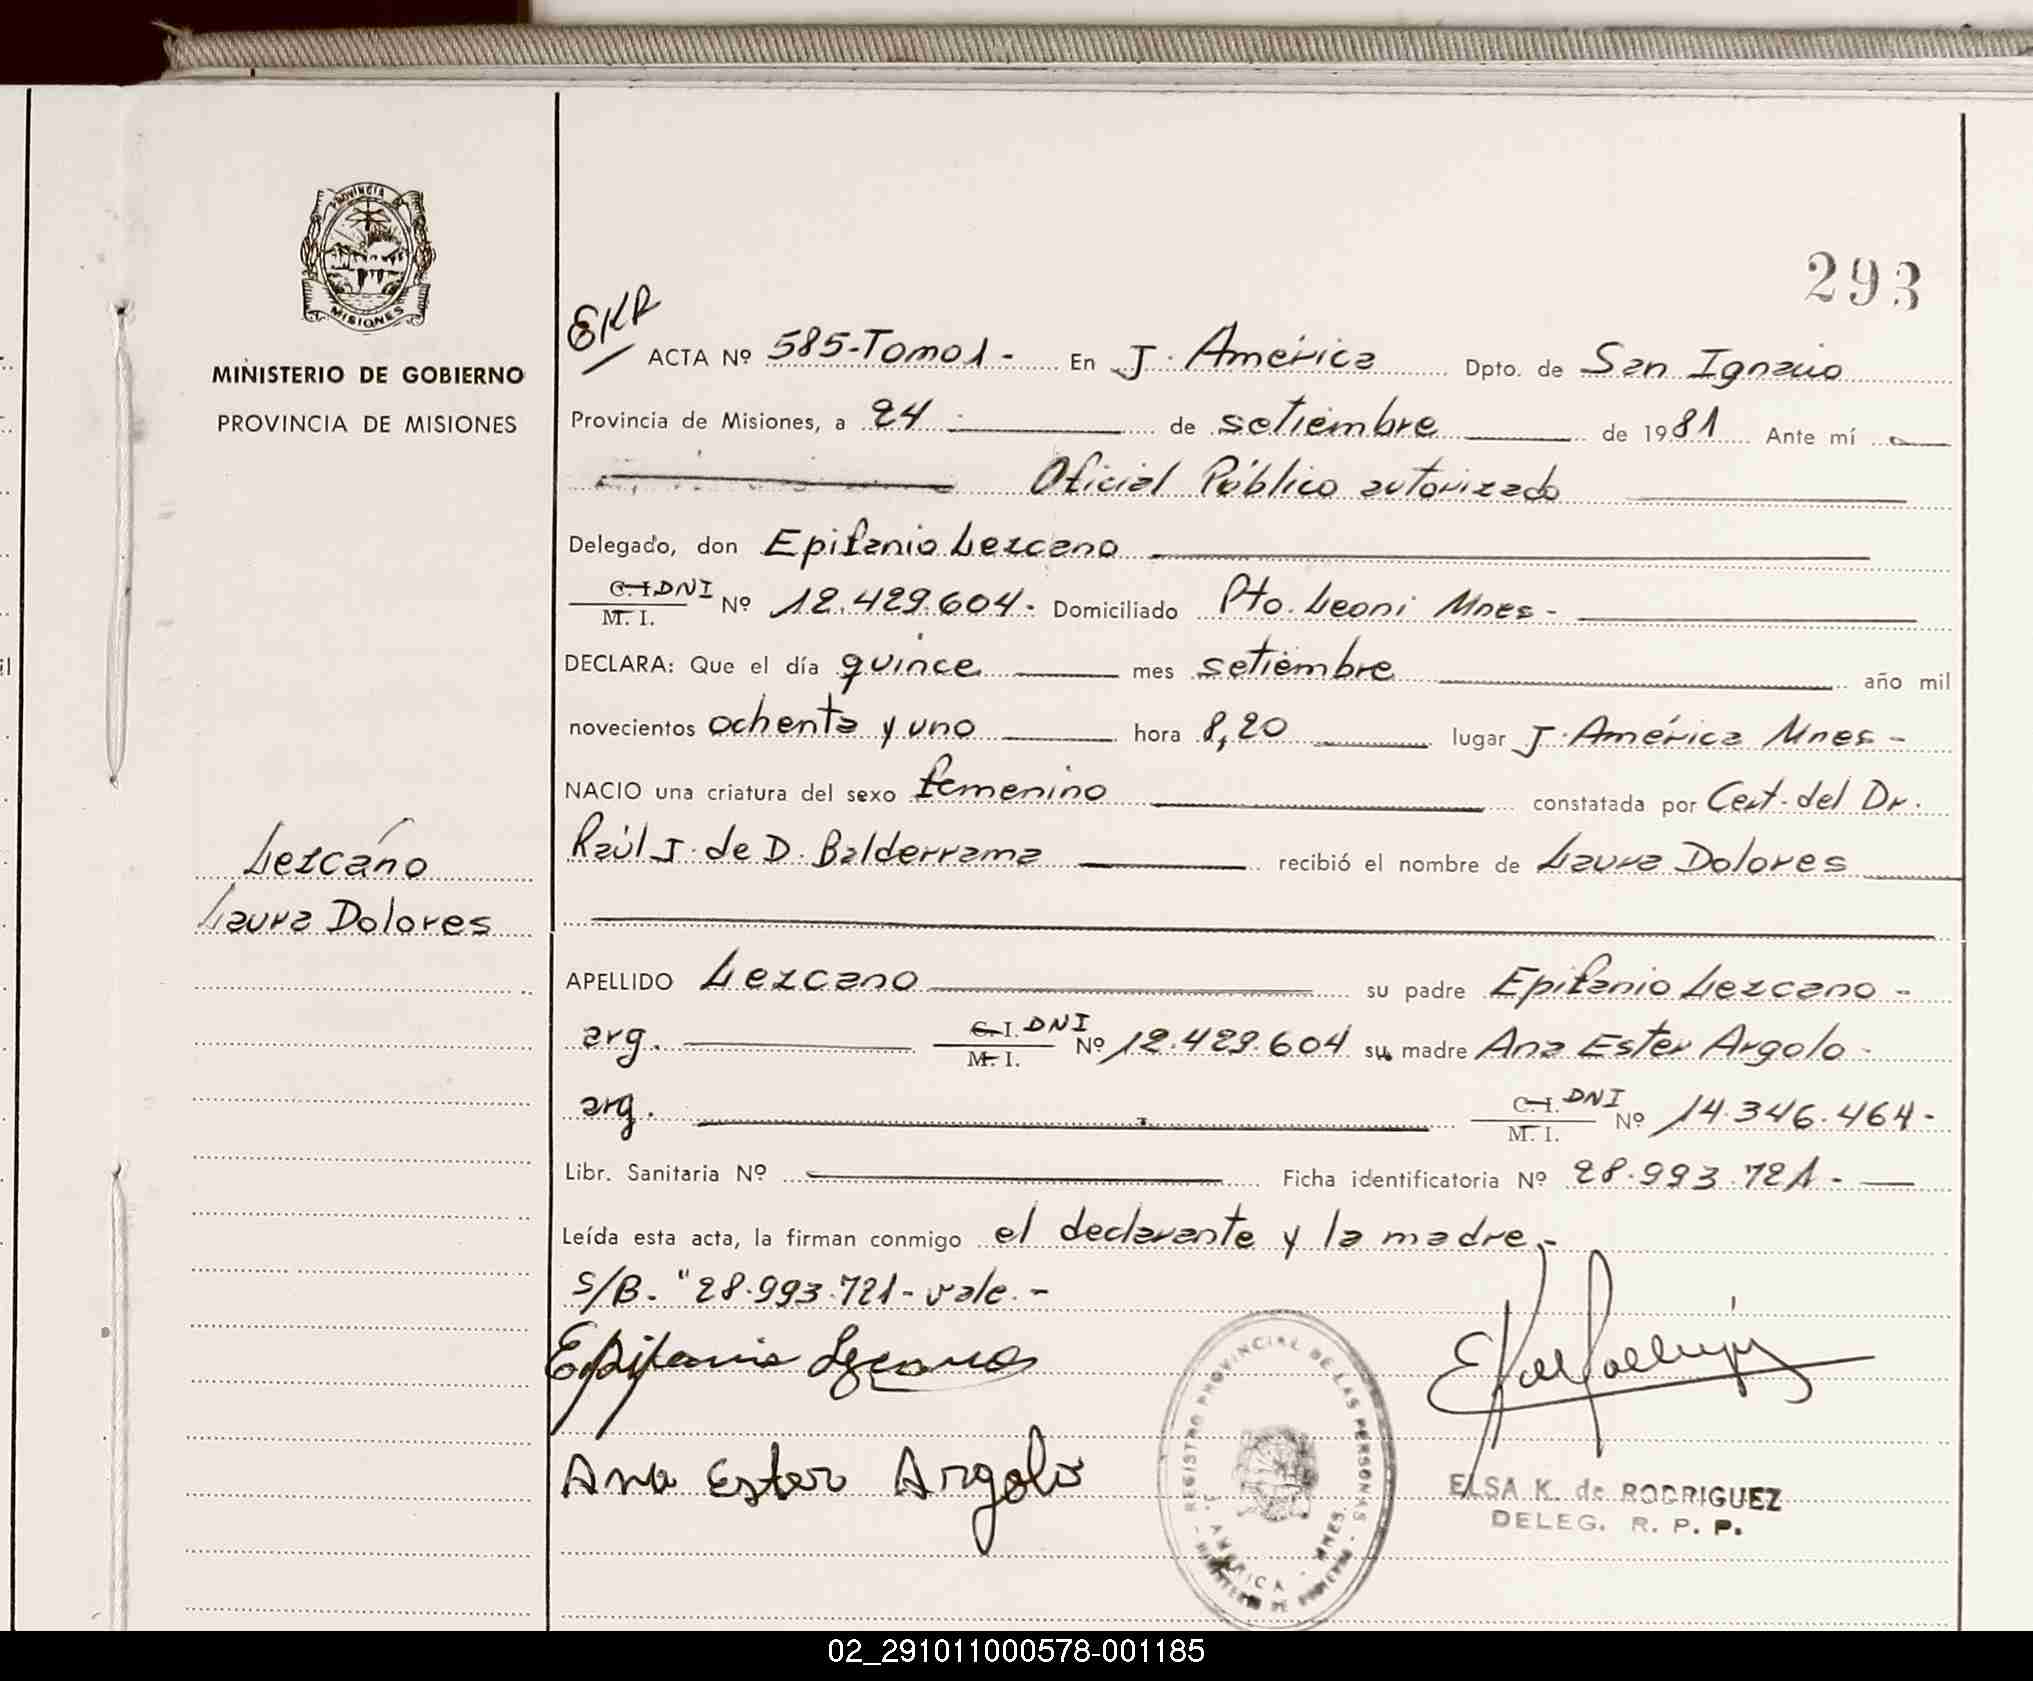 PROVINCIA DE
MISIONES
MINISTERIO DE GOBIERNO
PROVINCIA DE MISIONES
293
EKR
ACTA Nº 585-Tomo1- En J. América Dpto. de San Ignacio
Provincia de Misiones, a 24 de setiembre de 1981 Ante mí
Oficial Público autorizado
Delegado, don Epifanio Lezcano
C.I DNI
M. I. Nº 12.429.604- Domiciliado Pto. Leoni Mnes-
DECLARA: Que el día quince mes setiembre año mil
novecientos ochenta y uno hora 8,20 lugar J. América Mnes-
NACIO una criatura del sexo femenino constatada por Cert. del Dr.
Raúl J. de D. Balderrama recibió el nombre de Laura Dolores
Lezcano
Laura Dolores
APELLIDO Lezcano su padre Epifanio Lezcano-
arg. C.I. DNI
M. I. Nº 12.429.604 su madre Ana Ester Argolo-
arg. C.I. DNI
M. I. Nº 14.346.464-
Libr. Sanitaria Nº Ficha identificatoria Nº 28.993.721-
Leída esta acta, la firman conmigo el declarante y la madre.-
S/B. "28.993.721- vale.-
Epifanio Lezcano
Ana Ester Argolo
REGISTRO PROVINCIAL DE LAS PERSONAS
J. AMERICA - MNES.
MINISTERIO DE GOBIERNO
ELSA K. de RODRIGUEZ
DELEG. R. P. P.
02_291011000578-001185